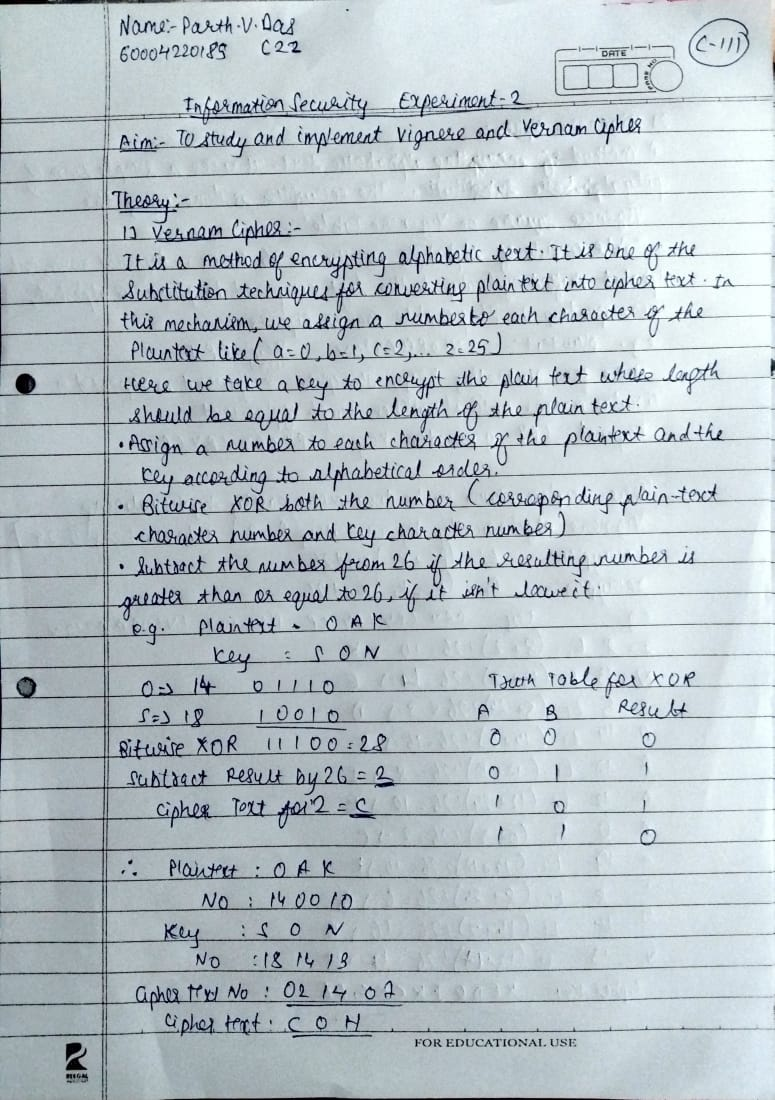 Name:- Parth.V.Das
60004220189 C22
C-111
DATE
Information Security Experiment-2
Aim:- To study and implement Vignere and Vernam Cipher
Theory:-
1) Vernam Cipher:-
It is a method of encrypting alphabetic text. It is one of the
Substitution techniques for converting plain text into cipher text. In
this mechanism, we assign a number to each character of the
Plaintext like (a=0, b=1, c=2, ... z=25)
Here we take a key to encrypt the plain text whose length
should be equal to the length of the plain text.
• Assign a number to each character of the plaintext and the
key according to alphabetical order.
• Bitwise XOR both the number (correspending plain-text
character number and Key character number)
• Subtract the number from 26 if the resulting number is
greater than or equal to 26, if it isn't leave it.
e.g. Plaintext - O A K
Key : S O N
O => 14 01110 Truth Table for XOR
S => 18 10010 A B Result
Bitwise XOR 11100 = 28 0 0 0
Subtract Result by 26 = 2 0 1 1
Cipher Text for 2 = C 1 0 1
1 1 0
∴ Plaintext : O A K
No : 14 00 10
Key : S O N
No : 18 14 13
Cipher text No : 02 14 07
Cipher text : C O H
FOR EDUCATIONAL USE